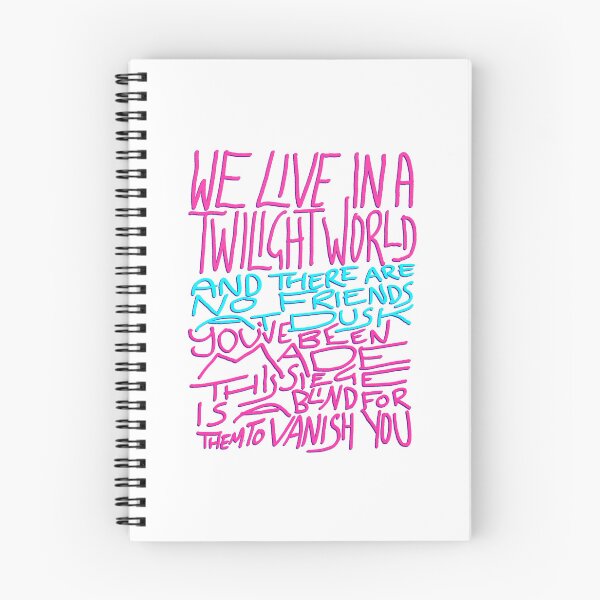 WE LIVE IN A
TWILIGHT WORLD
AND THERE ARE
NO FRIENDS
AT DUSK
YOU'VE BEEN
MADE
THIS SIEGE
IS A BLIND FOR
THEM TO VANISH YOU